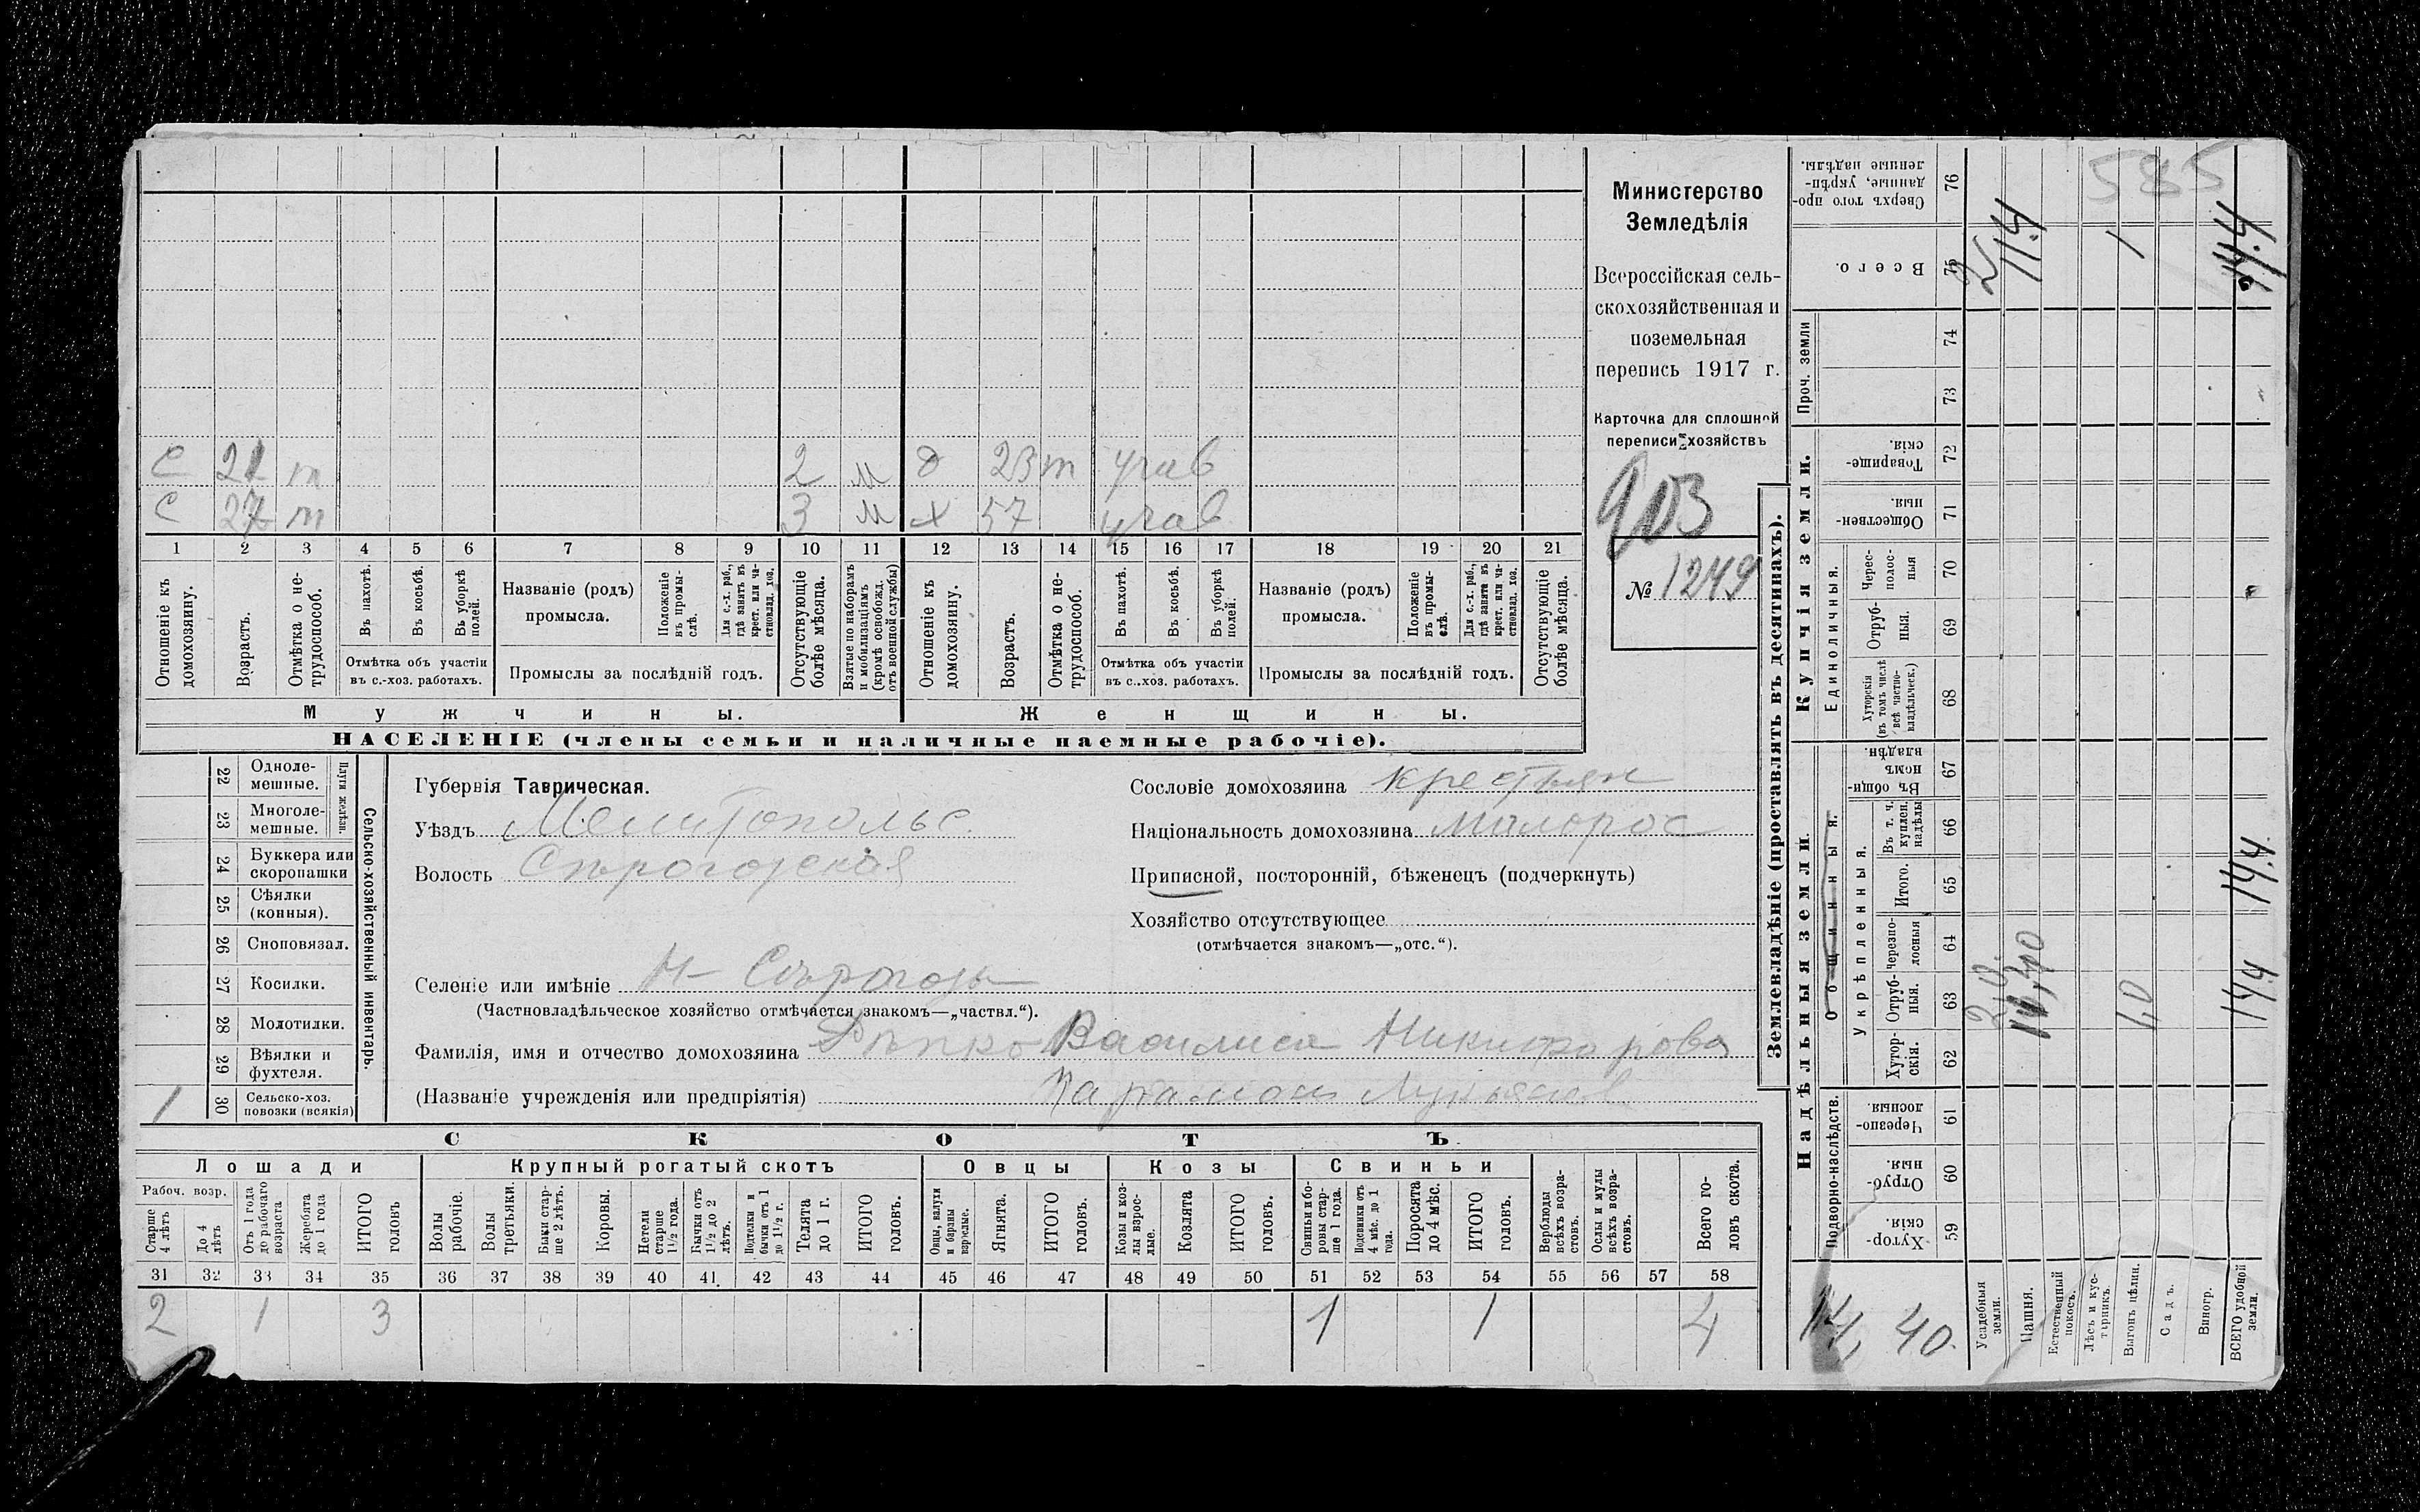 Министерство
Земледѣлія
Всероссійская сель-
скохозяйственная и
поземельная
перепись 1917 г.
Карточка для сплошной
переписи хозяйствъ
903
№ 1249
С 21 т 2 м д 23 т убав
С 27 т 3 м х 57
1 2 3 4 5 6 7 8 9 10 11 12 13 14 15 16 17 18 19 20 21
Отношеніе къ домохозяину.
Возрастъ.
Отмѣтка о не-трудоспособ.
Въ пахотѣ.
Въ косьбѣ.
Въ уборкѣ полей.
Отмѣтка объ участіи
въ с.-хоз. работахъ.
Названіе (родъ)
промысла.
Положеніе въ промы-слѣ.
Для с.-х. раб., гдѣ занятъ въ крест. или ча-стновлад. хоз.
Промыслы за послѣдній годъ.
Отсутствующіе болѣе мѣсяца.
Взятые по наборамъ и мобилизаціямъ (кромѣ освобожд. отъ военной службы)
Отношеніе къ домохозяину.
Возрастъ.
Отмѣтка о не-трудоспособ.
Въ пахотѣ.
Въ косьбѣ.
Въ уборкѣ полей.
Отмѣтка объ участіи
въ с.-хоз. работахъ.
Названіе (родъ)
промысла.
Положеніе въ промы-слѣ.
Для с.-х. раб., гдѣ занята въ крест. или ча-стновлад. хоз.
Промыслы за послѣдній годъ.
Отсутствующіе болѣе мѣсяца.
Мужчины.
Женщины.
НАСЕЛЕНІЕ (члены семьи и наличные наемные рабочіе).
22 Однолемешные.
23 Многолемешные.
Плуги желѣзн.
24 Буккера или скоропашки
25 Сѣялки (конныя).
26 Сноповязал.
27 Косилки.
28 Молотилки.
29 Вѣялки и фухтеля.
1 30 Сельско-хоз. повозки (всякія)
Сельско-хозяйственный инвентарь.
Губернія Таврическая.
Уѣздъ Мелитопольс
Волость Сѣрогозская
Селеніе или имѣніе Н-Сѣрогозы
(Частновладѣльческое хозяйство отмѣчается знакомъ—„частвл.“).
Фамилія, имя и отчество домохозяина Василиса Никифорова
(Названіе учрежденія или предпріятія) Парамон Лукьянов
Сословіе домохозяина крестьян
Національность домохозяина малорос
Приписной, посторонній, бѣженецъ (подчеркнуть)
Хозяйство отсутствующее
(отмѣчается знакомъ—„отс.“).
СКОТЪ
Лошади
Крупный рогатый скотъ
Овцы
Козы
Свиньи
Рабоч. возр.
Старше 4 лѣтъ
До 4 лѣтъ
Отъ 1 года до рабочаго возраста
Жеребята до 1 года
ИТОГО головъ
Волы рабочіе.
Волы третьяки.
Быки стар-ше 2 лѣтъ.
Коровы.
Нетели старше 1½ года.
Бычки отъ 1½ до 2 лѣтъ.
Подтелки и бычки отъ 1 до 1½ г.
Телята до 1 г.
ИТОГО головъ.
Овцы, валухи и бараны взрослые.
Ягнята.
ИТОГО головъ.
Козы и коз-лы взрос-лые.
Козлята
ИТОГО головъ.
Свиньи и бо-ровы стар-ше 1 года.
Подсвинки отъ 4 мѣс. до 1 года.
Поросята до 4 мѣс.
ИТОГО головъ.
Верблюды всѣхъ возра-стовъ.
Ослы и мулы всѣхъ возра-стовъ.
Всего го-ловъ скота.
31 32 33 34 35 36 37 38 39 40 41 42 43 44 45 46 47 48 49 50 51 52 53 54 55 56 57 58
2 1 3 1 1 4
Землевладѣніе (проставлять въ десятинахъ).
Надѣльныя земли.
Купчія земли.
Проч. земли
Подворно-наслѣдств.
Общинныя.
Укрѣпленныя.
Единоличныя.
59 Хутор-скія.
60 Отруб-ныя.
61 Черезпо-лосныя.
62 Хутор-скія.
63 Отруб-ныя.
64 Черезпо-лосныя
65 Итого.
66 Въ т. ч. куплен. надѣлы
67 Въ общи-номъ владѣн.
68 Хуторскія (въ томъ числѣ всѣ частно-владѣльческ.)
69 Отруб-ныя.
70 Черес-полос-ныя
71 Обществен-ныя.
72 Товарище-скія.
73
74
75 Всего.
76 Сверхъ того про-данные, укрѣп-ленные надѣлы.
Усадебныя земли.
Пашня.
Естественный покосъ.
Лѣсъ и кус-тарникъ.
Выгонъ цѣлин.
Садъ.
Виногр.
ВСЕГО удобной земли.
14, 40.
2,0
1,0
14,4
14,4
2
11.4
1
14.4
585